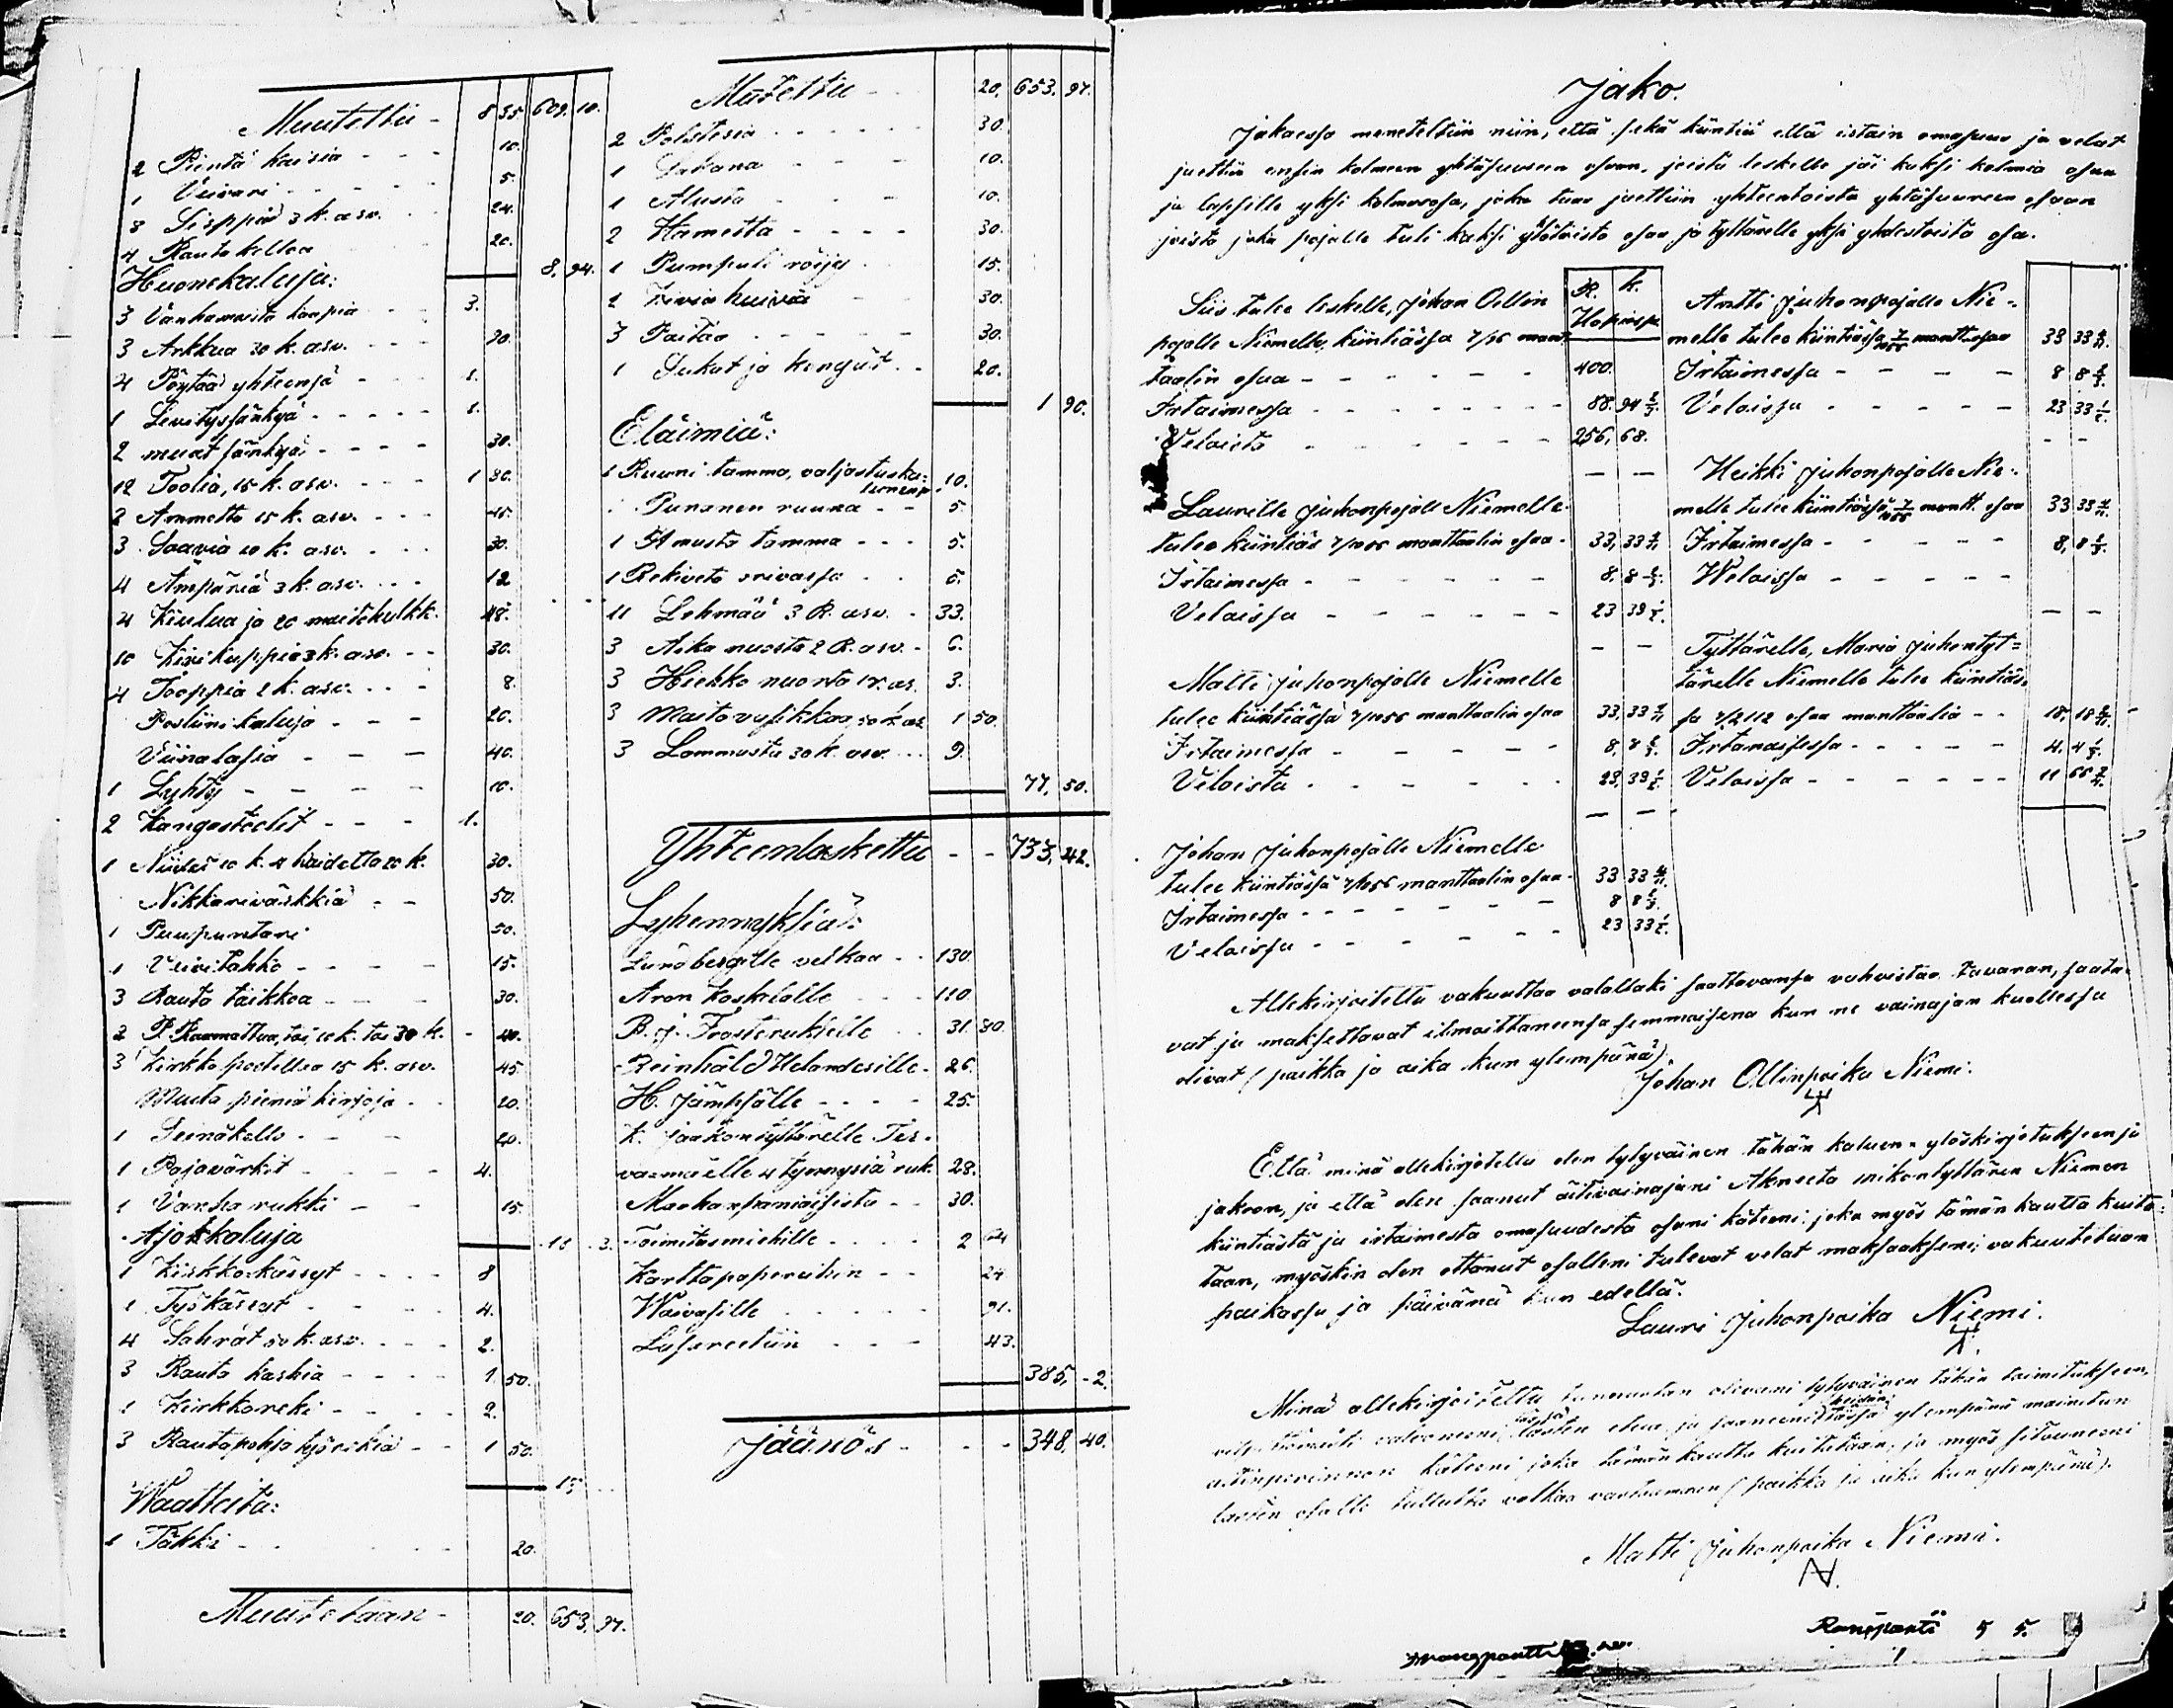 Muutettu - 8 35 609. 10.
2 Pientä kaisia - - - 10.
1 Viivari - - - - - 5.
8 Sirppiä 3 k. asv. - - 24.
4 Rauta kelloa 20.
8. 94.
Huonekaluja:
3 Vanhanaista kaapia - - 3.
3 Arkkua 30 k. asv. - - - 90.
4 Pöytää yhteensä - - - 1.
1 Levityssänkyä - - - - - 1.
2 muut sänkyä - - - - 30.
12 Toolia, 15 k. asv. - - - 1 80.
3 Ammetta 15 k. asv. - - - 45.
3 Saavia 10 k. asv. - - - 30.
4 Ämpäriä 3 k. asv. - - - 12
4 Kiulua ja 20 maitokulkk. 48.
10 Kivikuppia 3 k. asv. - - 30.
4 Tooppia 2 k. asv. - - - 8.
Posliini kaluja - - - 20.
Viinalasia - - - 40.
1 Lyhty - - - - 10.
2 Kangastoolit - - - 1.
1 Niidet 10 k. 4 kaidetta 20 k. 30.
Nikkariväskkiä - - 50.
1 Puupuntari 50.
1 Veivitahko - - - - 15.
3 Rauta taikkoa - - - 30.
2 P. Raamattua, toi 10 k. toi 30 k. - 40.
3 Kirkko postillaa 15 k. asv. 45
Muita pieniä kirjoja - - 20.
1 Seinäkello - - - 20.
1 Pajavärkit - - - - 4.
1 Vanha rukki - - 15.
18 3.
Ajokkaluja
1 Kirkko kässyt - - - - 8
1 Työkässat - - - - 4.
4 Sahrat 50 k. asv. - - - 2.
3 Rauta karhia - - - - 1. 50.
1 Kirkkoreki - - - - 2.
3 Rautapohja työrekiä - - 1 50.
Waatteita:
1 Täkki - - - - 20.
Muutetaan - 20. 653. 97.
Mutettu - - 20. 653. 97.
2 Polsteria - - - - - - 30.
1 Lakana - - - 10.
1 Alusta - - - 10.
2 Hametta - - - - 30.
1 Pumpuli röijy - - 15.
2 Kivia huivia - - 30.
3 Paitaa - - - - - 30.
1 Sukat ja kengät - - 20.
1 90.
Eläimiä:
1 Ruuni tamma, valjastuska-
luinensa 10.
Punanen ruuna - - 5.
1 musta tamma - - - 5.
1 Rekiveto orivarsa - - 5.
11 Lehmää 3 R. asv. - 33.
3 Aika nuorta 2 R. asv. - 6.
3 Hiehko nuorta 1 r. as. 3.
3 Maito vasikkaa 50 k. as. 1 50.
3 Lammasta 30 k. asv. - - - 9.
77, 50.
Yhteenlaskettu - - 733, 42.
Lyhennyksiä:
Lundbergille velkaa - - 130.
Aron Koskelalle - - - 110
B. J. Foosterukselle - - 31. 80.
Reinhold Helanderille - 26.
H. Jämpsälle - - - - 25.
K. Jaakontyttärelle Ter-
vamäelle 4 tynnyriä ruk. 28.
Maahanpaniaisista - - 30.
Toimitusmiehille - - - - 2 64
Karttapapereihin - - 24
Waivasille - - - - - 91.
Lasareetiin - - - 43.
385, - 2.
Jäänös - - - 348, 40.
Jako.
Jakaessa meneteltiin niin, että sekä kiintiä että irtain omasuus ja velat
jaettiin ensin kolmeen yhtäsuureen osaan, joista leskelle jäi kaksi kolmia osaa
ja lapsille yksi kolmasosa, joka taas jaettiin yhteentoista yhtäsuureen osaan
joista joka pojalle tuli kaksi yhdestoista osaa ja tyttärelle yksi yhdestoista osa.
R. k.
Hopeassa
Siis tulee leskelle, Johan Ollin
pojalle Niemelle, kiintiässä 7/96 mant-
taalin osaa - - - - - - 400.
Irtaimessa - - - - - - - - 88. 94
Veloista - - - - - - - 256, 68.
Laurille Juhonpojalle Niemelle
tulee kiintiäs 7/1056 manttaalin osaa - 33, 33
Irtaimessa - - - - - - 8, 8
Veloissa - - - - - - 23 33
Matti Juhonpojalle Niemelle
tulee kiintiässä 7/1056 manttaalin osaa 33, 33
Irtaimessa - - - - - 8, 8
Veloista - - - - - - 23, 33
Johan Juhonpojalle Niemelle
tulee kiintiässä 7/1056 manttaalin osaa - 33 33
Irtaimessa - - - - - - 8 8
Veloissa - - - - - - 23 33
Antti Juhonpojalle Nie-
melle tulee kiintiässä 7/1056 mantt. osaa 33 33
Irtaimessa - - - - 8 8
Veloissa - - - - - 23 33
Heikki Juhonpojalle Nie-
melle tulee kiintiässä 7/1056 mantt. osaa 33 33
Irtaimessa - - - - - 8, 8
Weloissa - - - - -
Tyttärelle, Maria Juhontyt-
tärelle Niemelle tulee kiintiäs-
sa 7/2112 osaa manttaalia - - 18, 18
Irtanaisessa - - - - - 4. 4
Veloissa - - - - - - 11 66
Allekirjoitettu vakuuttaa valallaki saattavansa vahvistaa tavaran, saata-
vat ja maksettavat ilmoittaneensa semmoisena kun ne vainajan kuollessa
olivat (paikka ja aika kun ylempänä).
Johan Ollinpoika Niemi.
Että minä allekirjotettu olen tytyväinen tähän kaluun-ylöskirjotukseen ja
jakoon, ja että olen saanut äitivainajani Akneeta mikontyttären Niemen
kiintiästä ja irtaimesta omasuudesta osani käteeni joka myös tämän kautta kuita-
taan, myöskin olen ottanut osalleni tulevat velat maksaakseni, vakuutetaan
paikassa ja päivänä kun edellä.
Lauri Juhonpoika Niemi.
Minä allekirjoitettu tunnustan olevani tytyväinen tähän toimitukseen,
lasten etua ja saaneeni tässä ylempänä mainitun
äitinperinnön käteeni joka tämän kautta kuitataan, ja myös sitouneeni
lasten osalle tullutta velkaa vastaamaan (paikka ja aika kun ylempänä).
Matti Juhonpoika Niemi.